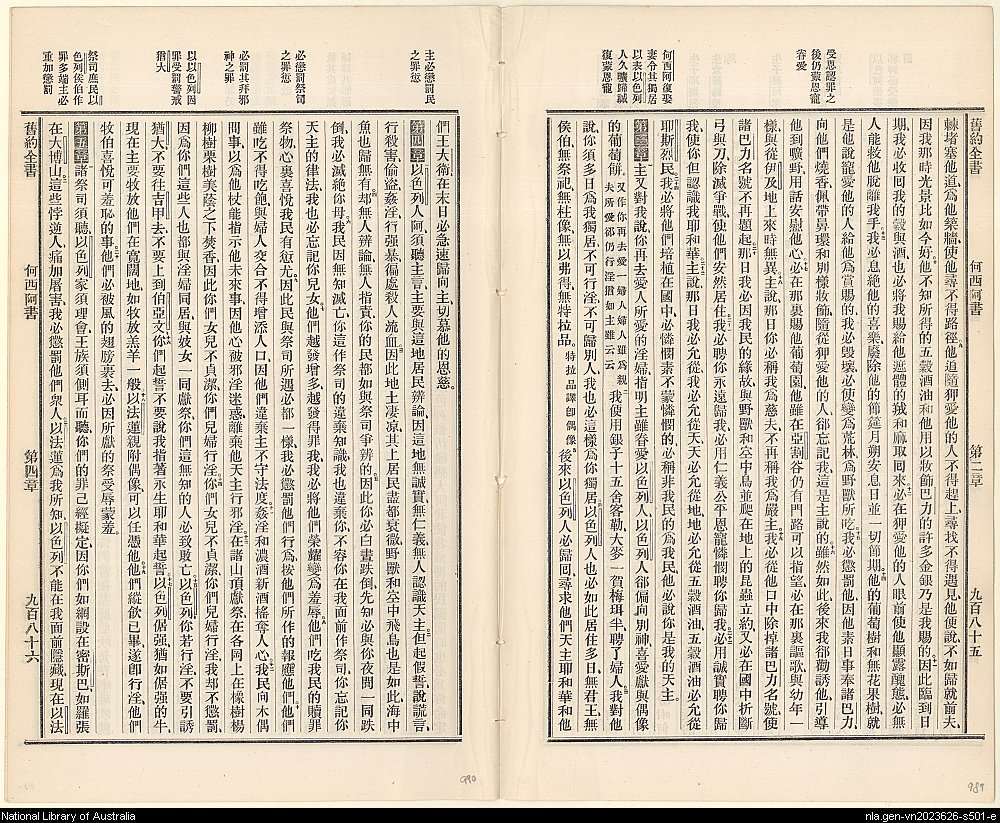 舊約全書 何西阿書 第二章 九百八十五
受恩認罪之
後仍蒙恩寵
眷愛
何西阿復娶
妻令其獨居
以表以色列
人久曠歸誠
復蒙恩寵
棘堵塞他道、爲他築牆、使他尋不得路徑、他追隨狎愛他的人不得趕上、尋找不得遇見、他便說、不如歸就前夫、
因我那時光景比如今好、他不知所得的五穀酒油、和他用以妝飾巴力的許多金銀、乃是我賜的、因此臨到日
期、我必收回我的穀與酒、也必將我賜給他遮體的羢和麻取回來、必在狎愛他的人眼前、使他顯露醜態、必無
人能救他脫離我手、我必息絶他的喜樂、廢除他的節筵月朔安息日、並一切節期、他的葡萄樹和無花果樹、就
是他說寵愛他的人給他爲賞賜的、我必毀壞、必使變爲荒林、爲野獸所吃、我必懲罰他、因他素日事奉諸巴力、
向他們燒香、佩帶鼻環和別樣妝飾、隨從狎愛他的人、郤忘記我、這是主說的、雖然如此、後來我郤勸誘他、引導
他到曠野、用話安慰他心、必在那裏賜他葡萄園、他雖在亞割谷仍有門路可以指望、必在那裏謳歌、與幼年一
樣、與從伊及地上來時無異、主說、那日你必稱我爲慈夫、不再稱我爲嚴主、我必從他口中除掉諸巴力名號、使
諸巴力名號不再題起、那日我必因我民的緣故、與野獸和空中鳥並爬在地上的昆蟲立約、又必在國中折斷
弓與刀、除滅爭戰、使他們安然居住、我必聘你永遠歸我、必用仁義公平恩寵憐憫聘你歸我、必用誠實聘你歸
我、使你但認識我耶和華、主說、那日我必允從、我必允從天、天必允從地、地必允從五穀酒油、五穀酒油必允從
耶斯烈、我必將他們培植在國中、必憐憫素不蒙憐憫的、必稱非我民的爲我民、他必說你是我的天主、
第三章 主又對我說、你再去愛人所愛的淫婦、指明主雖眷愛以色列人、以色列人郤偏向別神、喜愛獻與偶像
的葡萄餅、又作你再去愛一婦人、婦人雖爲親夫所愛、郤仍行淫、猶如主雖云云 我便用銀子十五舍客勒、大麥一賀梅珥半、聘了婦人、我對他
說、你須多日爲我獨居、不可行淫、不可歸別人、我也必這樣爲你獨居、以色列人也必如此居住多日、無君王、無
侯伯、無祭祀、無柱像、無以弗得、無特拉品、特拉品譯卽偶像 後來以色列人必歸回、尋求他們天主耶和華和他
們王大衛、在末日必急速歸向主、切慕他的恩慈、
主必懲罰民
之罪愆
必懲罰祭司
之罪愆
必罰其拜邪
神之罪
以以色列因
罪受罰警戒
猶大
祭司庶民以
色列侯伯作
罪多端主必
重加懲罰
第四章 以色列人阿、須聽主言、主要與這地居民辨論、因這地無誠實、無仁義、無人認識天主、但起假誓、說謊言、
行殺害、偷盜、姦淫、行强暴、徧處殺人流血、因此地土凄凉、其上居民盡都衰微、野獸和空中飛鳥也是如此、海中
魚也歸無有、却無人辨論、無人指責、你的民都如與祭司爭辨的、因此你必白晝跌倒、先知必與你夜間一同跌
倒、我必滅絶你母、我民因無知滅亡、你這作祭司的違棄知識、我也違棄你、不容你在我面前作祭司、你忘記你
天主的律法、我也必忘記你兒女、他們越發增多、越發得罪我、我必將他們榮耀變爲羞辱、他們吃我民的贖罪
祭物、心裏喜悅我民有愆尤、因此民與祭司所遇必都一樣、我必懲罰他們行爲、按他們所作的報應他們、他們
雖吃不得吃飽、與婦人交合不得增添人口、因他們違棄主、不守法度、姦淫和濃酒新酒搐奪人心、我民向木偶
問事、以爲他杖能指示他未來事、因他心被邪淫迷惑、離棄他天主行邪淫、在諸山頂獻祭、在各岡上在橡樹楊
柳樹栗樹美蔭之下焚香、因此你們女兒不貞潔、你們兒婦行淫、你們女兒不貞潔、你們兒婦行淫、我却不懲罰、
因爲你們這些人也都與淫婦同居、與妓女一同獻祭、你們這無知的人必致敗亡、以色列、你若行淫、不要引誘
猶大、不要往吉甲去、不要上到伯亞文、你們起誓不要說、我指著永生耶和華起誓、以色列倔强、猶如倔强的牛、
現在主要牧放他們在寬闊地、如牧放羔羊一般、以法蓮親附偶像、可以任憑他、他們縱飲已畢、遂卽行淫、他們
牧伯喜悅可羞恥的事、他們必被風的翅膀裹去、必因所獻的祭受辱蒙羞、
第五章 諸祭司須聽、以色列家須理會、王族須側耳而聽、你們的罪已經擬定、因你們如網設在密斯巴、如羅張
在大博山、這些悖逆人、痛加屠害、我必懲罰他們衆人、以法蓮爲我所知、以色列不能在我面前隱藏、現在以法
舊約全書 何西阿書 第四章 九百八十六
990
989
National Library of Australia
nla.gen-vn2023626-s501-e